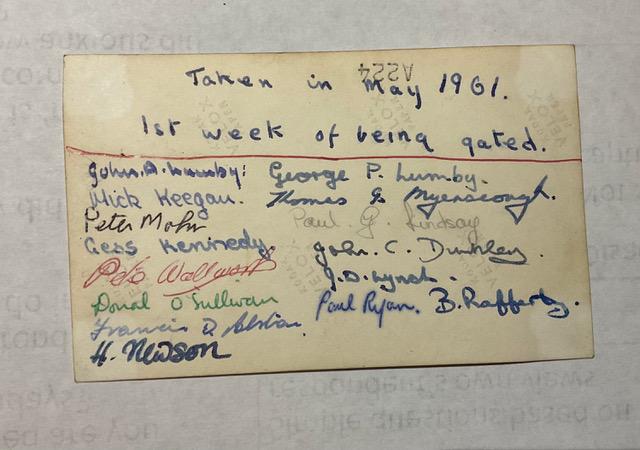 A224
Taken in May 1961.
1st week of being gated.
John.D.Lumby: George P. Lumby.
Mick Keegan. Thomas G. Myerscough.
Peter Mohr Paul. G. Lindsay
Gess Kennedy John. C. Dunkley.
Pete Wallwork J.D. Lynch.
Donal O'Sullivan Paul Ryan. B. Rafferty.
Francis D.
H. NEWSON
VELOX